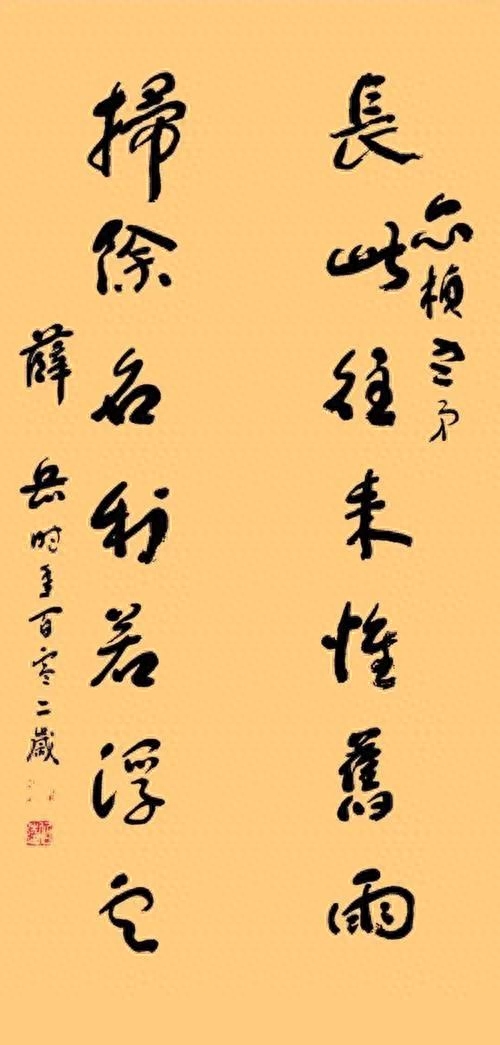 楨弟
長此往来惟舊雨
掃除名利若浮云
薛岳時年百零二歲